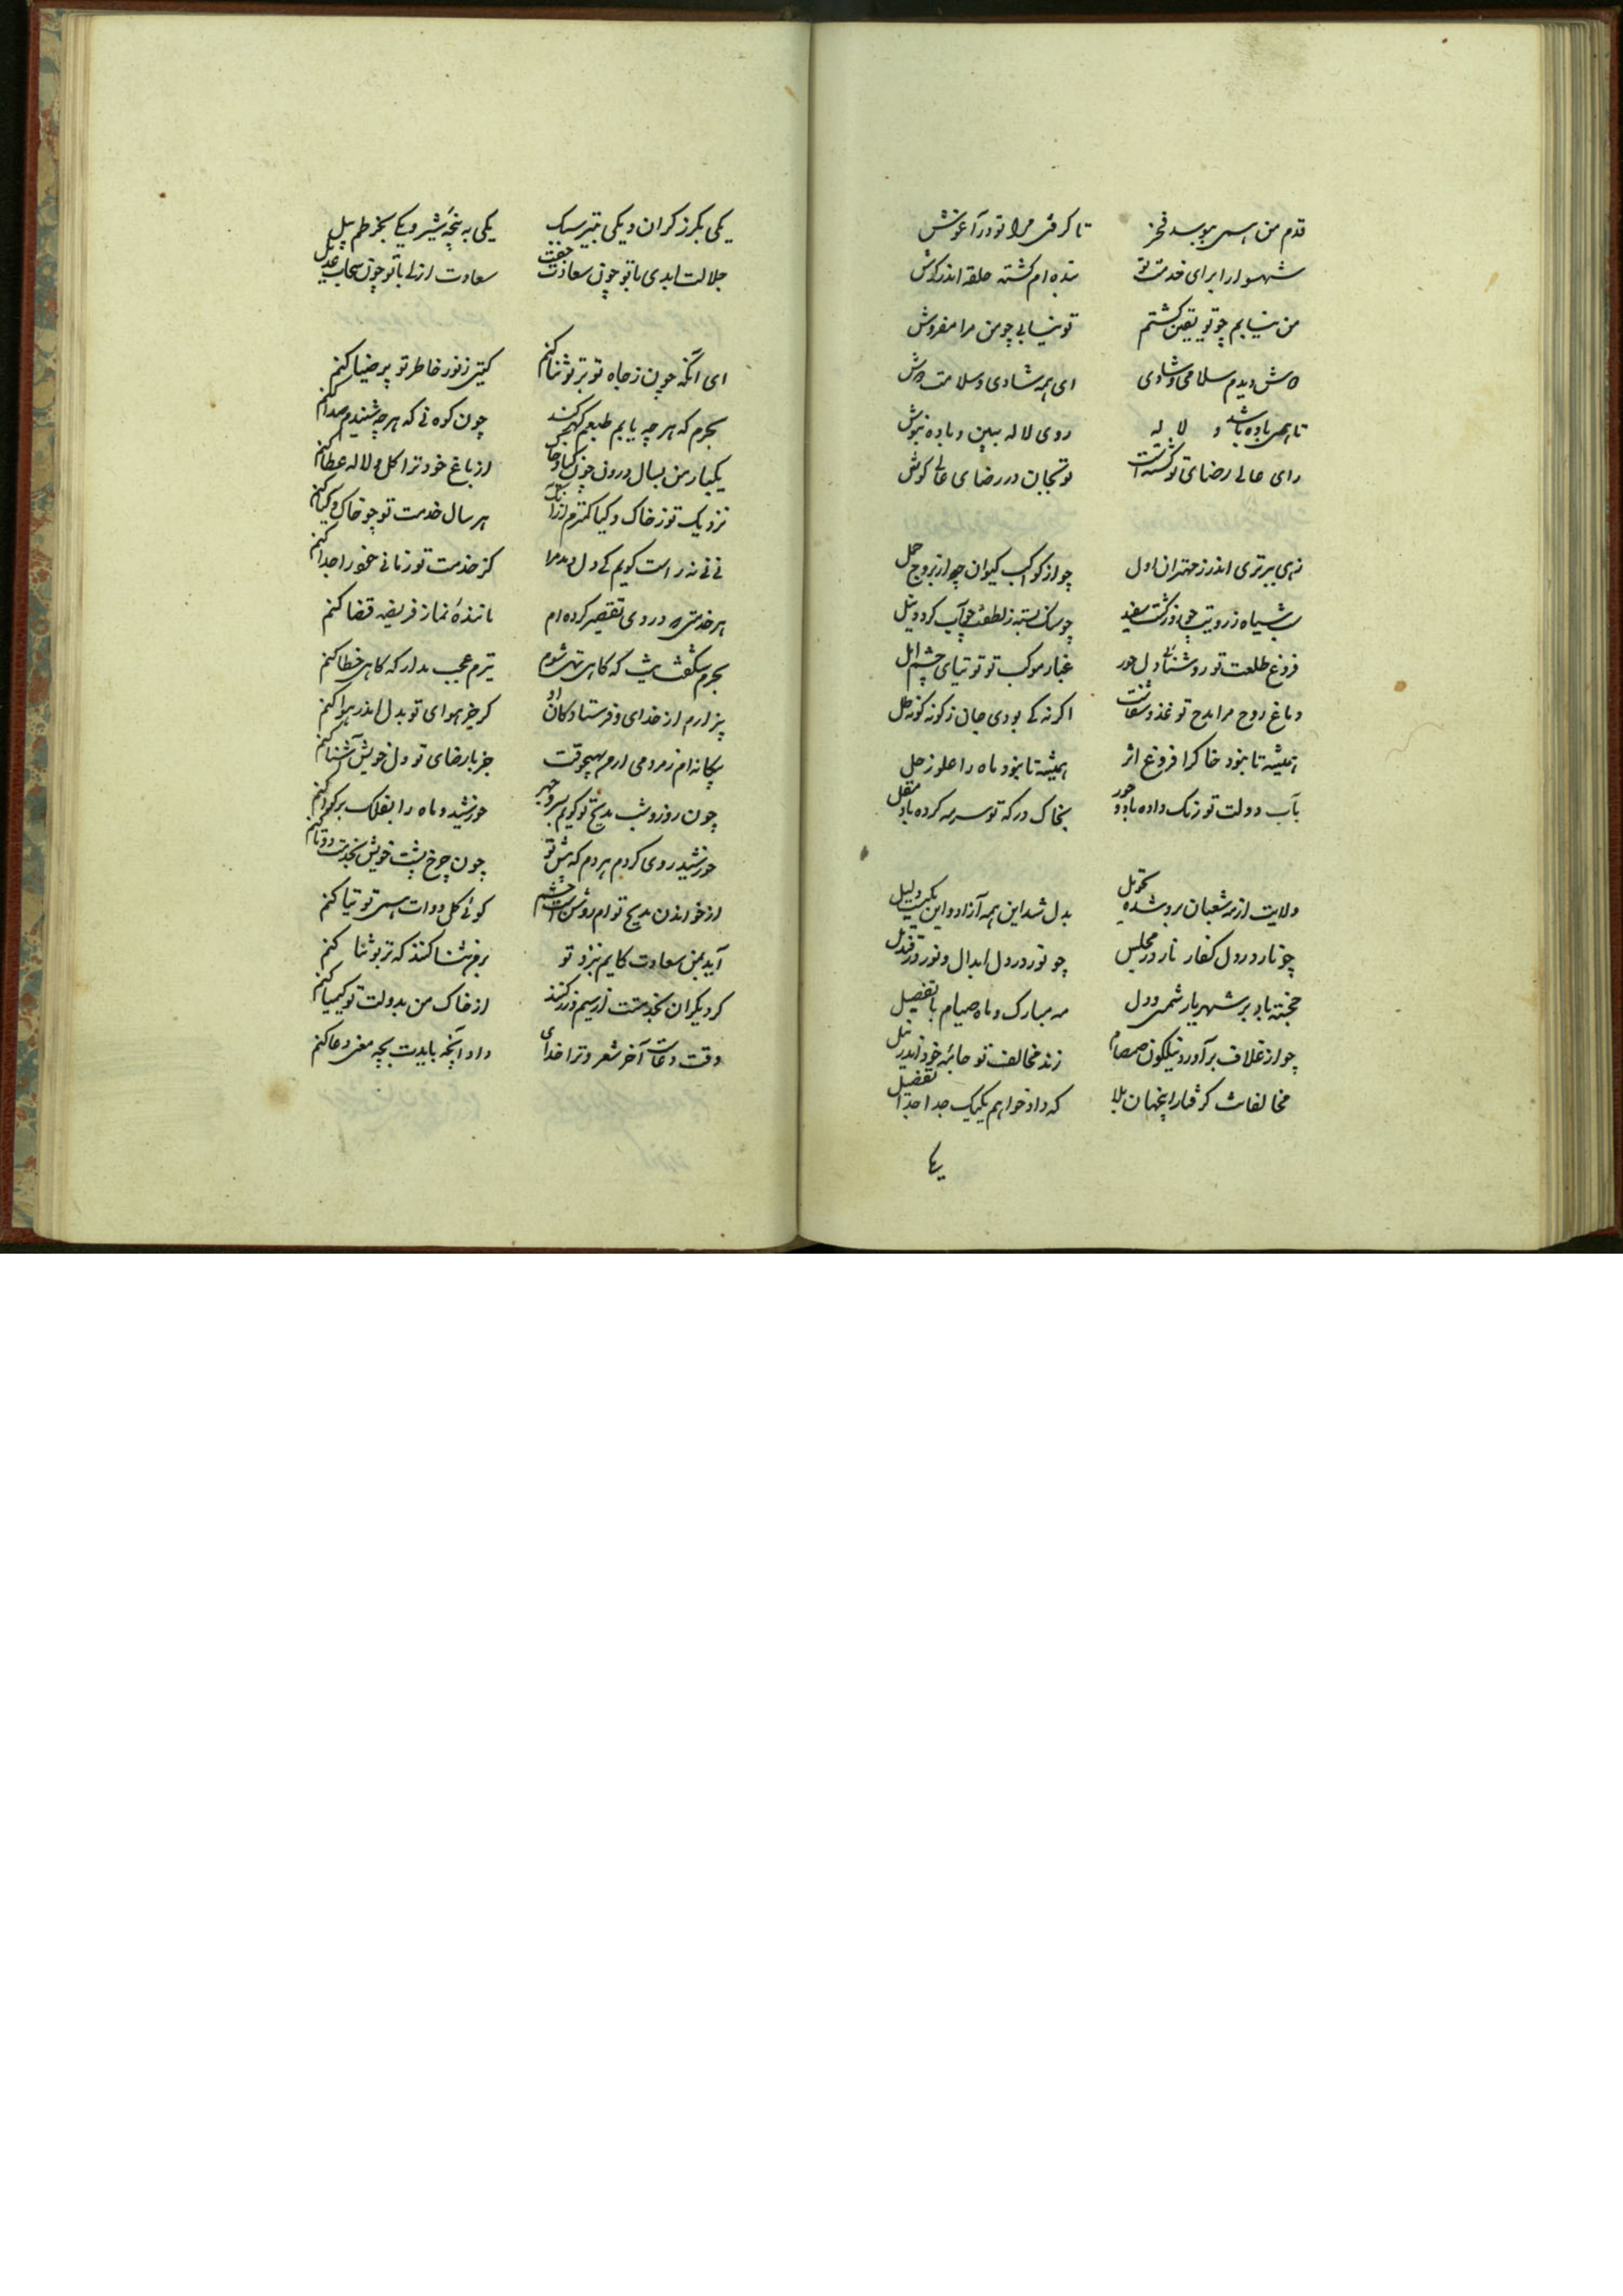 قدم من همی ببوسد فخر تا گرفتی مرا تو در آغوش
شهسوارا برای خدمت تو بنده ام گشته حلقه اندر گوش
من نیابم چو تو یقین گشتم تو نیابی چو من مرا مفروش
دیدم سلامی و شادی ای همه شادی و سلامت
تا همی باده باشد و لاله روی لاله ببین و باده بنوش
رای عالی رضای تو گشته است تو بجان در رضای عالی کوش
زهی ببرتری اندر ز مهتران اول چو از کواکب کیوان چو از بروج حمل
شب سیاه ز رویت چو روز گشت سفید چو سنگ بسته ز لطفت چو آب گردد
فروغ طلعت تو روشنائی دل حور غبار موکب تو توتیای چشم امل
دماغ روح مرا مدح تو غذو شفاست اگر نه کی بودی جان ز گونه گونه علل
همیشه تا نبود خاک را فروغ اثر همیشه تا نبود ماه را علو زحل
بآب دولت تو رنگ داده بادو حور بخاک درگه تو سرمه کرده باد مقل
ولایت از مه شعبان بروشده تحویل بدل شد این همه آزاد و این
چو نار در دل کفار نار در مجلس چو نور در دل ابدال و نور در قندیل
خجسته باد بر شهریار شمس دول مه مبارک و ماه صیام با تفضیل
چو از غلاف برآورد نیلگون صمصام زند مخالف تو جامهٔ خود اندر نیل
مخالفانت گرفتار بلا که داد خواهم یکیک جدا جدا تفضیل
یکی
یکی بگرز گران و یکی بتیر سبک یکی به پنجهٔ شیر و یکی بخرطم پیل
جلالت ابدی با تو چون سعادت جفت سعادت ازلی با تو چون سحاب عدیل
ای آنکه چون ز جاه تو بر تو ثنا کنم گیتی ز نور خاطر تو پر ضیا کنم
بحرم که هر چه یابم طبعم گهر کند چون کوه نی که هر چه شنیدم صدا کنم
یکبار من بسال درون چون گیاه و خاک از باغ خود ترا گل و لاله عطا کنم
نزدیک تو ز خاک و گیا کمترم از آنک هر سال خدمت تو چو خاک و گیا کنم
نی نی نه راست گویم کی دل دهد مرا کز خدمت تو زمانی خود را جدا کنم
هر خدمتی که در وی تقصیر کرده ام مانندهٔ نماز فریضه قضا کنم
بحرم شگفت نیست که گاهی تهی شوم تیرم عجب مدار که گاهی خطا کنم
بیزارم از خدای و فرستادگان او گر جز هوای تو بدل اندر هوا کنم
بیگانه ام ز مردمی ار هیچوقت جز با رضای تو دل خویش آشنا کنم
چون روز و شب مدیح تو گویم بسر و جهر خورشید و ماه را بفلک بر گوا کنم
خورشید روی گردم هر دم که پیش تو چون چرخ پشت خویش بخدمت دوتا کنم
از خواندن مدیح توام روشن است چشم گوئی گل دوات همی توتیا کنم
آید بمن سعادت کایم بنزد تو بر من ثنا کنند که بر تو ثنا کنم
گر دیگران بخدمتت از سیم زر کنند از خاک من بدولت تو کیمیا کنم
وقت دعاست آخر شعر و ترا خدای داد آنچه بایدت بچه معنی دعا کنم